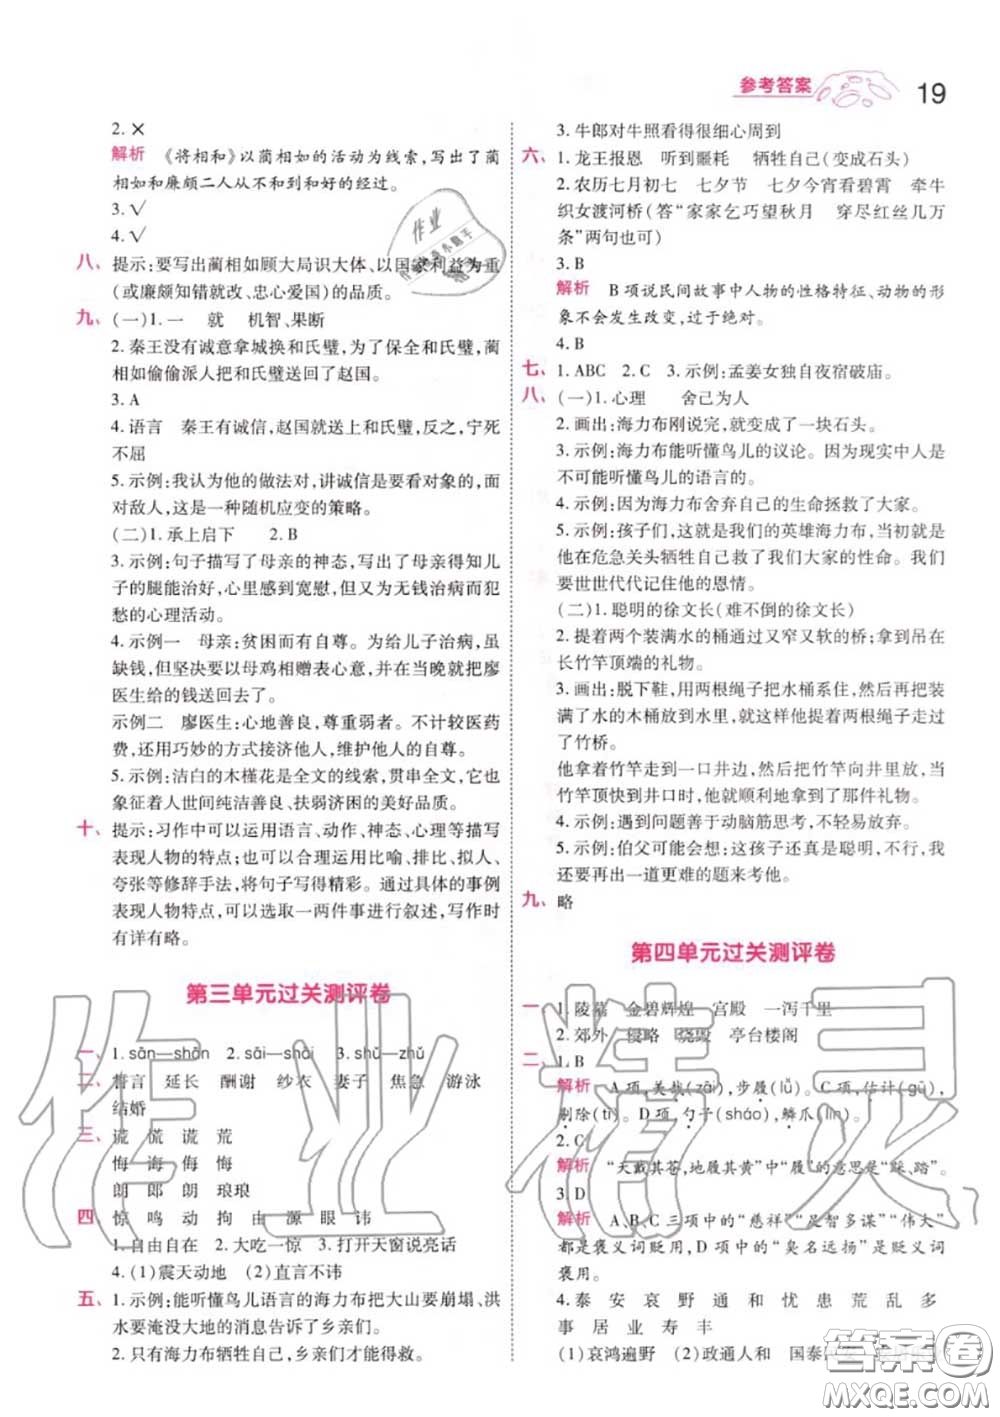 参考答案
19
2. ✕
解析 《将相和》以蔺相如的活动为线索,写出了蔺
相如和廉颇二人从不和到和好的经过。
3. √
4. √
八、提示:要写出蔺相如顾大局识大体、以国家利益为重
(或廉颇知错就改、忠心爱国)的品质。
九、(一)1. 一 就 机智、果断
2. 秦王没有诚意拿城换和氏璧,为了保全和氏璧,蔺
相如偷偷派人把和氏璧送回了赵国。
3. A
4. 语言 秦王有诚信,赵国就送上和氏璧,反之,宁死
不屈
5. 示例:我认为他的做法对,讲诚信要看对象的,面
对敌人,这是一种随机应变的策略。
(二)1. 承上启下 2. B
3. 示例:句子描写了母亲的神态,写出了母亲得知儿
子的腿能治好,心里感到宽慰,但又为无钱治病而犯
愁的心理活动。
4. 示例一 母亲:贫困而有自尊。为给儿子治病,虽
缺钱,但坚决要以母鸡相赠表心意,并在当晚就把廖
医生给的钱送回去了。
示例二 廖医生:心地善良,尊重弱者。不计较医药
费,还用巧妙的方式接济他人,维护他人的自尊。
5. 示例:洁白的木槿花是全文的线索,贯串全文,它也
象征着人世间纯洁善良、扶弱济困的美好品质。
十、提示:习作中可以运用语言、动作、神态、心理等描写
表现人物的特点;也可以合理运用比喻、排比、拟人、
夸张等修辞手法,将句子写得精彩。通过具体的事例
表现人物特点,可以选取一两件事进行叙述,写作时
有详有略。
第三单元过关测评卷
一、1. sān—shān 2. sāi—shāi 3. shǔ—zhǔ
二、誓言 延长 酬谢 纱衣 妻子 焦急 游泳
结婚
三、谎 慌 谎 荒
悔 海 侮 悔
朗 郎 朗 琅琅
四、惊 鸣 动 拘 由 源 眼 讳
1. 自由自在 2. 大吃一惊 3. 打开天窗说亮话
4. (1)震天动地 (2)直言不讳
五、1. 示例:能听懂鸟儿语言的海力布把大山要崩塌、洪
水要淹没大地的消息告诉了乡亲们。
2. 只有海力布牺牲自己,乡亲们才能得救。
3. 牛郎对牛照看得很细心周到
六、1. 龙王报恩 听到噩耗 牺牲自己(变成石头)
2. 农历七月初七 七夕节 七夕今宵看碧霄 牵牛
织女渡河桥(答“家家乞巧望秋月 穿尽红丝几万
条”两句也可)
3. B
解析 B项说民间故事中人物的性格特征、动物的形
象不会发生改变,过于绝对。
4. B
七、1. ABC 2. C 3. 示例:孟姜女独自夜宿破庙。
八、(一)1. 心理 舍己为人
2. 画出:海力布刚说完,就变成了一块石头。
3. 示例:海力布能听懂鸟儿的议论。因为现实中人是
不可能听懂鸟儿的语言的。
4. 示例:因为海力布舍弃自己的生命拯救了大家。
5. 示例:孩子们,这就是我们的英雄海力布,当初就是
他在危急关头牺牲自己救了我们大家的性命。我们
要世世代代记住他的恩情。
(二)1. 聪明的徐文长(难不倒的徐文长)
2. 提着两个装满水的桶通过又窄又软的桥;拿到吊在
长竹竿顶端的礼物。
3. 画出:脱下鞋,用两根绳子把水桶系住,然后再把装
满了水的木桶放到水里,就这样他提着两根绳子走过
了竹桥。
他拿着竹竿走到一口井边,然后把竹竿向井里放,当
竹竿顶快到井口时,他就顺利地拿到了那件礼物。
4. 示例:遇到问题善于动脑筋思考,不轻易放弃。
5. 示例:伯父可能会想:这孩子还真是聪明,不行,我
还要再出一道更难的题来考他。
九、略
第四单元过关测评卷
一、1. 陵墓 金碧辉煌 宫殿 一泻千里
2. 郊外 侵略 烧毁 亭台楼阁
二、1. B
解析 A项,美哉(zāi),步履(lǚ)。C项,估计(gū),
剔除(tī)。D项,勺子(sháo),鳞爪(lín)。
2. C
解析 “天戴其苍,地履其黄”中“履”的意思是“踩、踏”。
3. D
解析 A、B、C三项中的“慈祥”“足智多谋”“伟大”
都是褒义词贬用,D项中的“臭名远扬”是贬义词
褒用。
4. 泰 安 哀 野 通 和 忧 患 荒 乱 多
事 居 业 寿 丰
(1)哀鸿遍野 (2)政通人和 国泰
作业精灵
答案圈
MXQE.COM